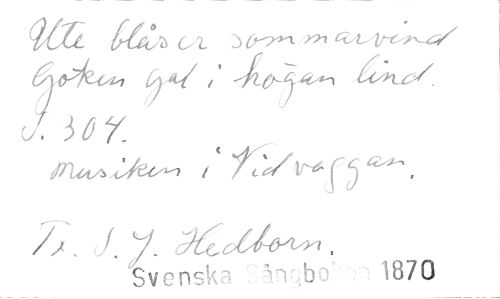 Ute blåser sommarvind
Göken gal i högan lind.
S. 304.
Musiken i Vid vaggan.
Tx. S. J. Hedborn.
Svenska Sångboken 1870